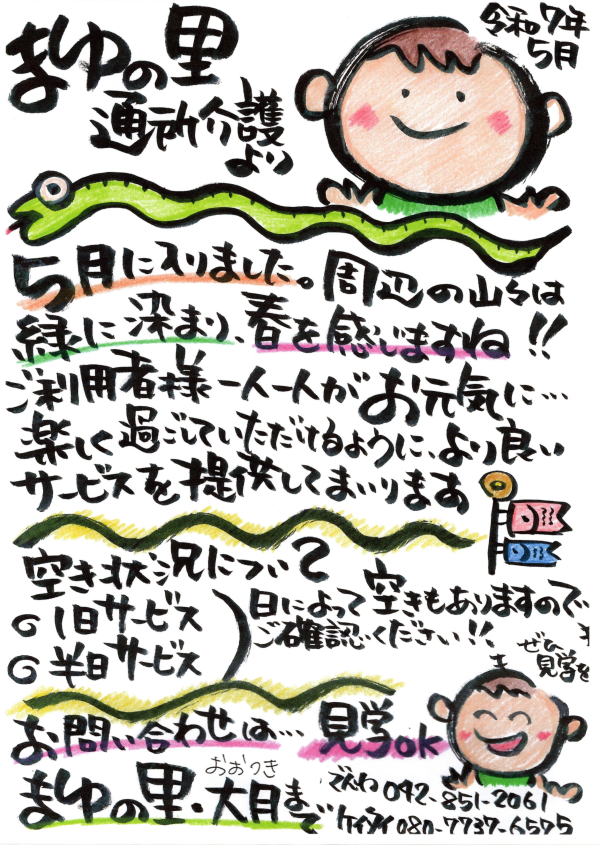 令和7年
5月
まゆの里
通所介護
より
5月に入りました。周辺の山々は
緑に染まり、春を感じますね!!
ご利用者様一人一人がお元気に…
楽しく過ごしていただけるように、より良い
サービスを提供してまいります
空き状況について
1日サービス
半日サービス
日によって空きもありますので
ご確認ください!!
ぜひ
見学を
お問い合わせは… 見学ok
おおつき
まゆの里・大月まで
でんわ 042-851-2061
ケイタイ 080-7737-6575